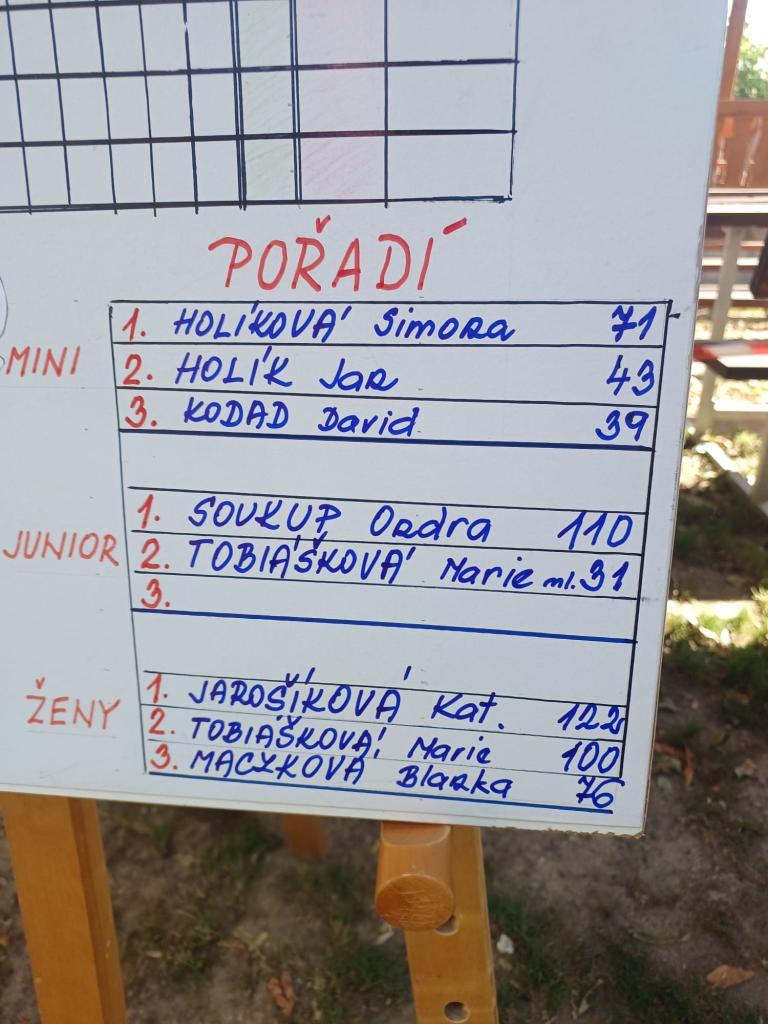 POŘADÍ
MINI
1. HOLÍKOVÁ Simona 71
2. HOLÍK Jan 43
3. KODAD David 39
JUNIOR
1. SOUKUP Ondra 110
2. TOBIÁŠKOVÁ Marie ml. 31
3.
ŽENY
1. JAROŠÍKOVÁ Kat. 122
2. TOBIÁŠKOVÁ Marie 100
3. MACZKOVÁ Blanka 76